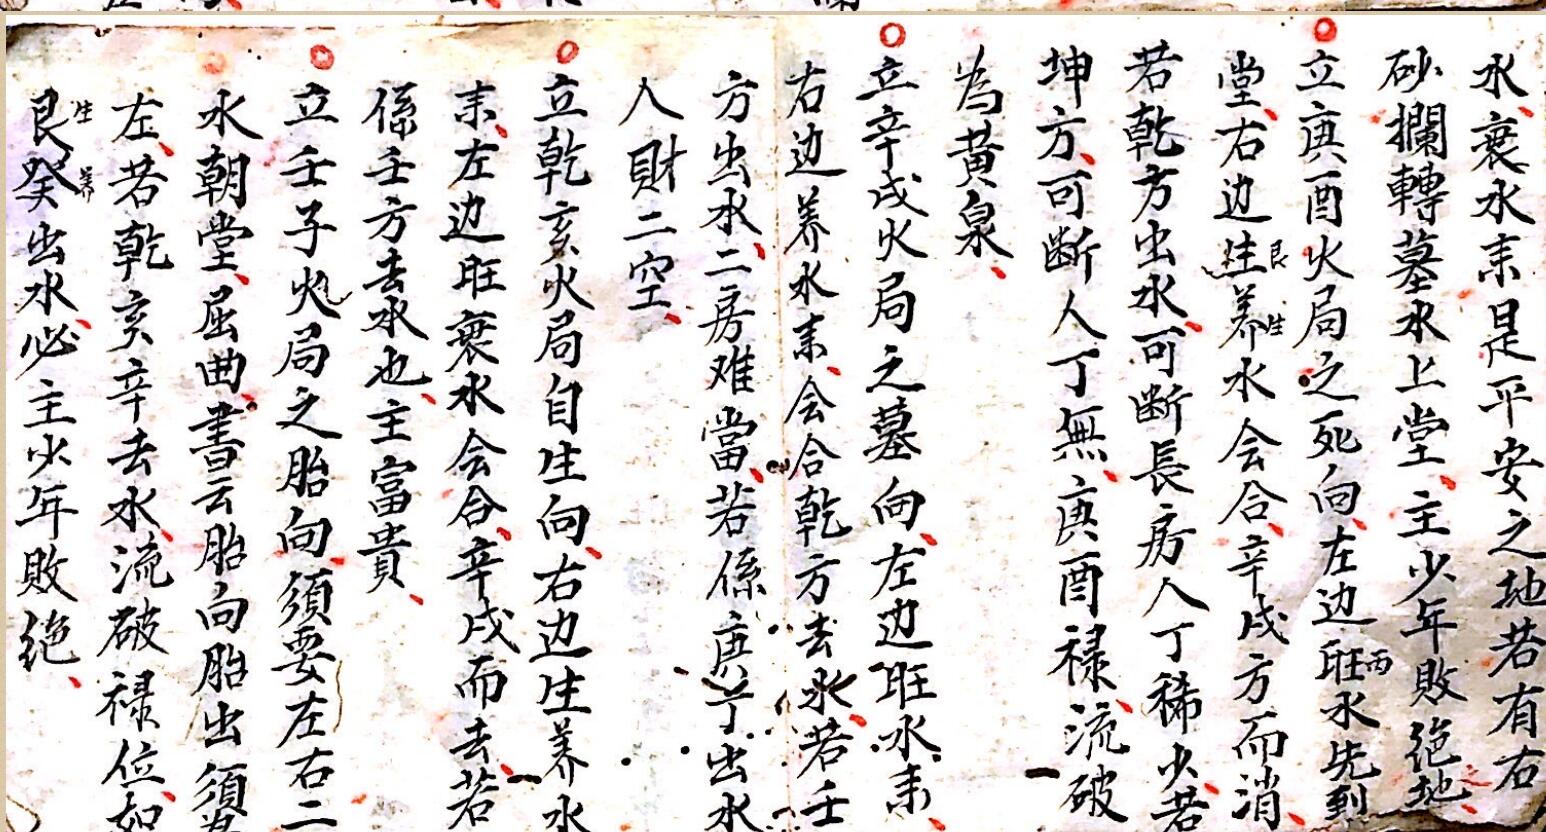 水衰水耒是平安之地若有右
砂攔轉墓水上堂主少年敗绝地
立庚酉火局之死向左边旺丙水先到
堂右边生艮养生水会合辛戌方而消
若乾方出水可断長房人丁稀少若
坤方可断人丁無庚酉禄流破
為黄泉
立辛戌火局之墓向左边旺水耒
右边养水耒会合乾方去水若壬
方出水二房难當若係庚丁出水
人財二空
立乾亥火局自生向右边生养水
耒左边旺衰水会合辛戌而去若
係壬方去水也主富貴
立壬子火局之胎向須要左右二
水朝堂屈曲書云胎向胎出須
左若乾亥辛去水流破禄位如
艮生癸养出水必主少年敗绝